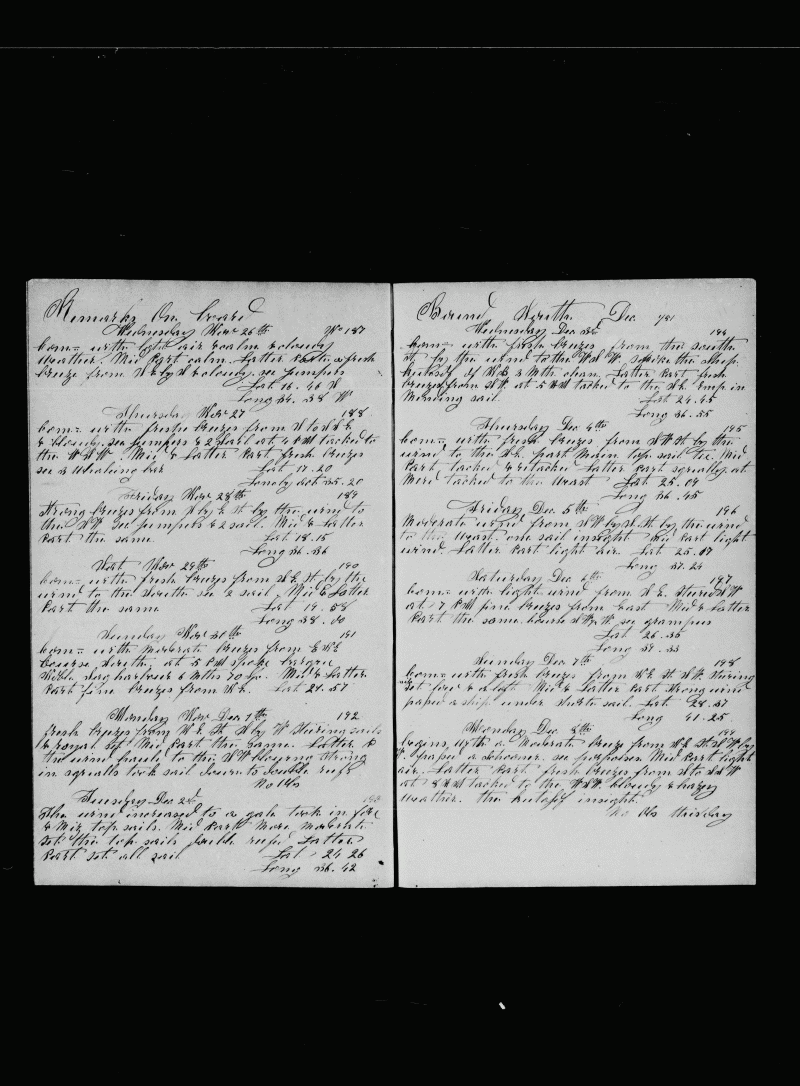 Remarks On board
Wednesday Nov 26th No 187
Com= with light air & calm & cloudy
weather. Mid Part calm. Latter Part a fresh
breeze from N E by N & cloudy. see jumpers
Lat 16. 46 S
Long 34. 38 W
Thursday Nov 27 188
Com= with fresh breezes from S to S E
& cloudy. see jumpers & 2 sail at 4 PM tacked to
the W S W. Mid & Latter Part fresh breezes
see a Whaling bar Lat 17. 20
Long 35. 20
Friday Nov 28th 189
Strong breezes from St by the wind to
the S W. see jumpers & 2 sail. Mid & Latter
Part the same. Lat 18. 15
Long 36. 36
Sat Nov 29th 190
Com= with fresh breezes from S E St by the
wind to the South see 2 sail. Mid & Latter
Part the same Lat 19. 58
Long 38. 00
Sunday Nov 30th 191
Com= with moderate breezes from E N E
Course South, at 5 PM spoke barque
Sag harbour 6 Mths Mid & Latter
Part fine breezes from N E. Lat 21. 57
Monday Dec 1th 192
Fresh breezes from N E St S by W Stering sails
& royal set Mid Part the same. Latter P
the wind hauls to the S W blowing strong
in squalls took sail down to double reefs
No Obs
Tuesday Dec 2d 193
The wind increased to a gale took in fore
& Miz top sails. Mid Part More Moderate
set the top sails double reef. Latter
Part set all sail Lat 24 26
Long 36. 42
Bound South Dec
Wednesday Dec 3d 194
Com= with fresh breezes from the South
St by the wind to the W S W, spoke the Ship
of N B 3 Mth clean. Latter Part fresh
breezes from S W. at 5 AM tacked to the S E Emp. in
Mending sail. Lat 24. 45
Long 36. 55
Thursday Dec 4th 195
Com= with fresh breezes from S W St by the
wind to the S E part Main top sail Mid
Part tacked & retacked Latter Part squally at
Meri tacked to the West Lat 25. 09
Long 36. 45
Friday Dec. 5th 196
Moderate wind from S W by S. St by the wind
to the West. one sail insight Mid Part light
wind. Latter Part light air. Lat 25. 07
Long 37. 24
Saturday Dec 6th 197
Com= with light wind from N E. Stered S W
at 7 PM fine breezes from East Mid & Latter
Part the same. Course S W see grampus
Lat 26. 36
Long 39. 33
Sunday Dec 7th 198
Com= with fresh breezes from N E St S W. Stering
set low & aloft. Mid & Latter Part Strong wind
passd a ship under short sail. Lat 28. 37
Long 41. 25.
Monday Dec 8th 199
begins with a Moderate breeze from N E St S W by
W. passd a schooner. see porpoises. Mid Part light
air. Latter Part fresh breezes from S to S S W
at 8 AM tacked to the W S W. cloudy & hazy
Weather. the insight.
No Obs this day